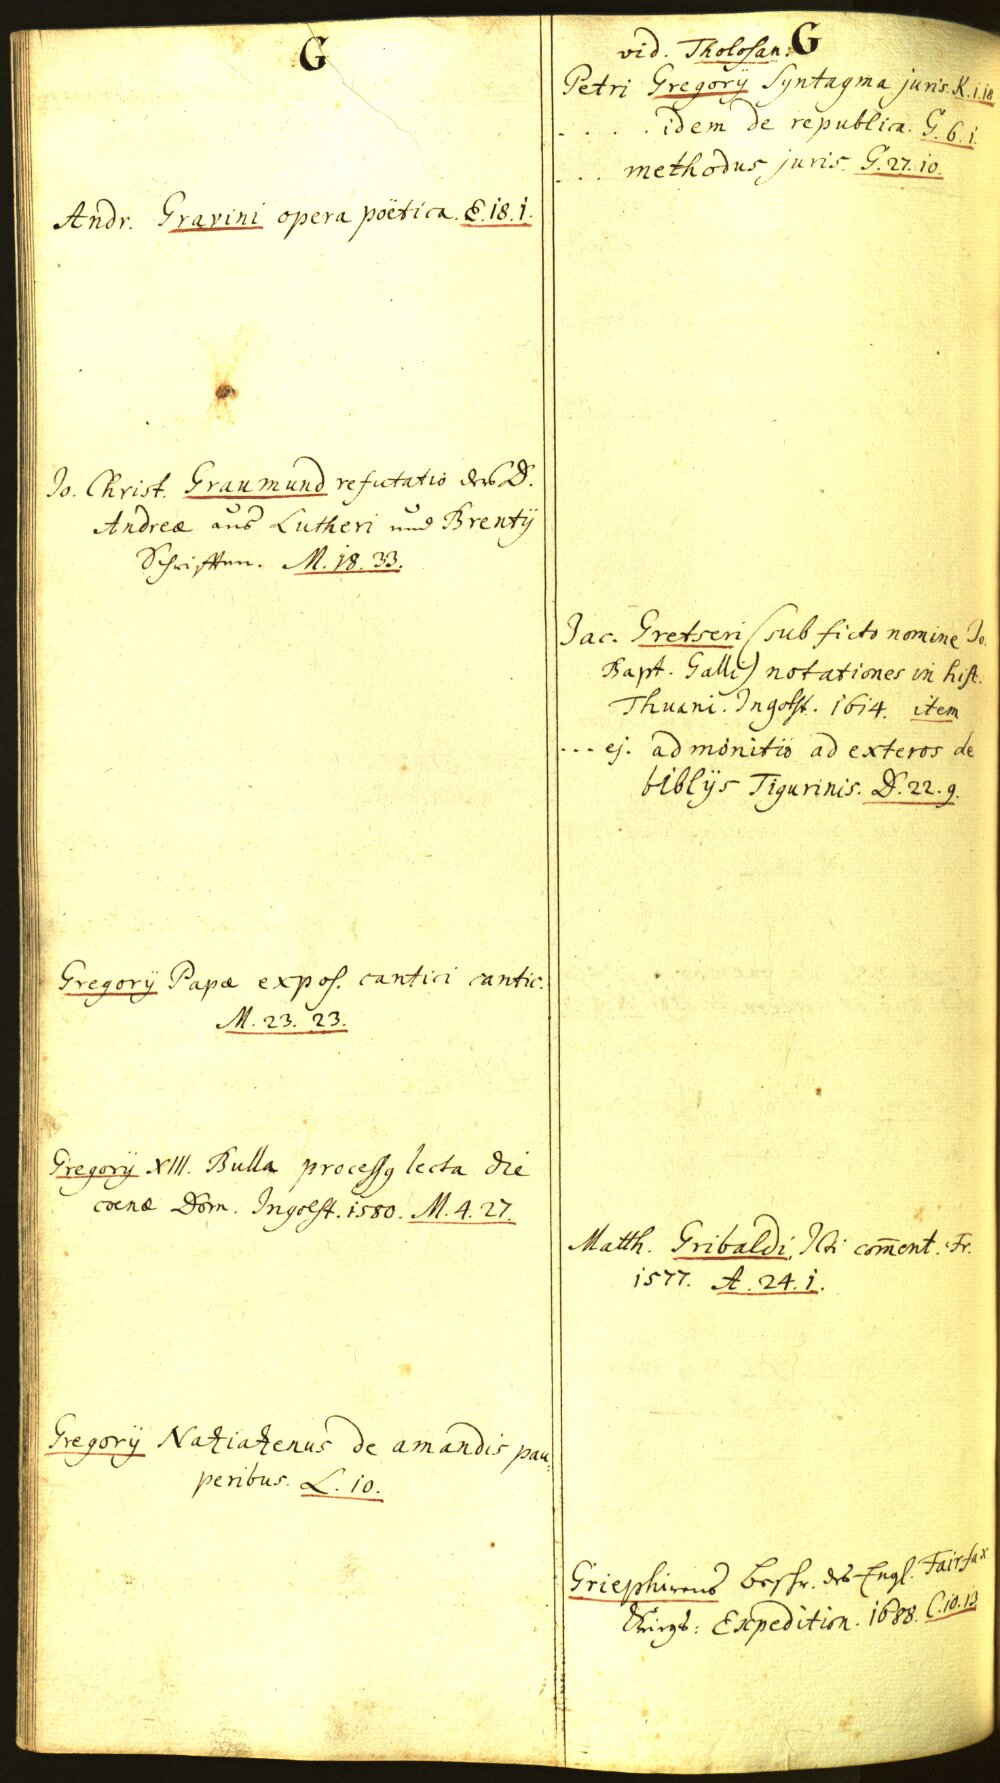 G
Andr. Gravini opera poëtica. E. 18. 1.
Jo. Christ. Graumund refutatio des D.
Andreæ aus Lutheri und Brentÿ
Schrifften. M. 18. 33.
Gregorÿ Papæ expos. cantici cantic.
M. 23. 23.
Gregorÿ XIII. Bulla processq lecta die
cœnæ Dom. Ingolst. 1580. M. 4. 27.
Gregorÿ Naziazenus de amandis pau:
peribus. L. 10.
G
vid. Tholosan:
Petri Gregorÿ Syntagma juris. K. 1. 18
. . . . . idem de republica. G. 6. 1.
. . . methodus juris. G. 27. 10.
Jac. Gretseri (sub ficto nomine Jo.
Bapt. Galli) notationes in hist.
Thuani. Ingolst. 1614. item
... ej. admonitio ad exteros de
biblÿs Tigurinis. D. 22. 9.
Matth. Gribaldi, ICti com̄ent. Fr.
1577. A. 24. 1.
Griephirens Beschr. des Engl. Fairfax
Kriegs: Expedition. 1688. C. 10. 13